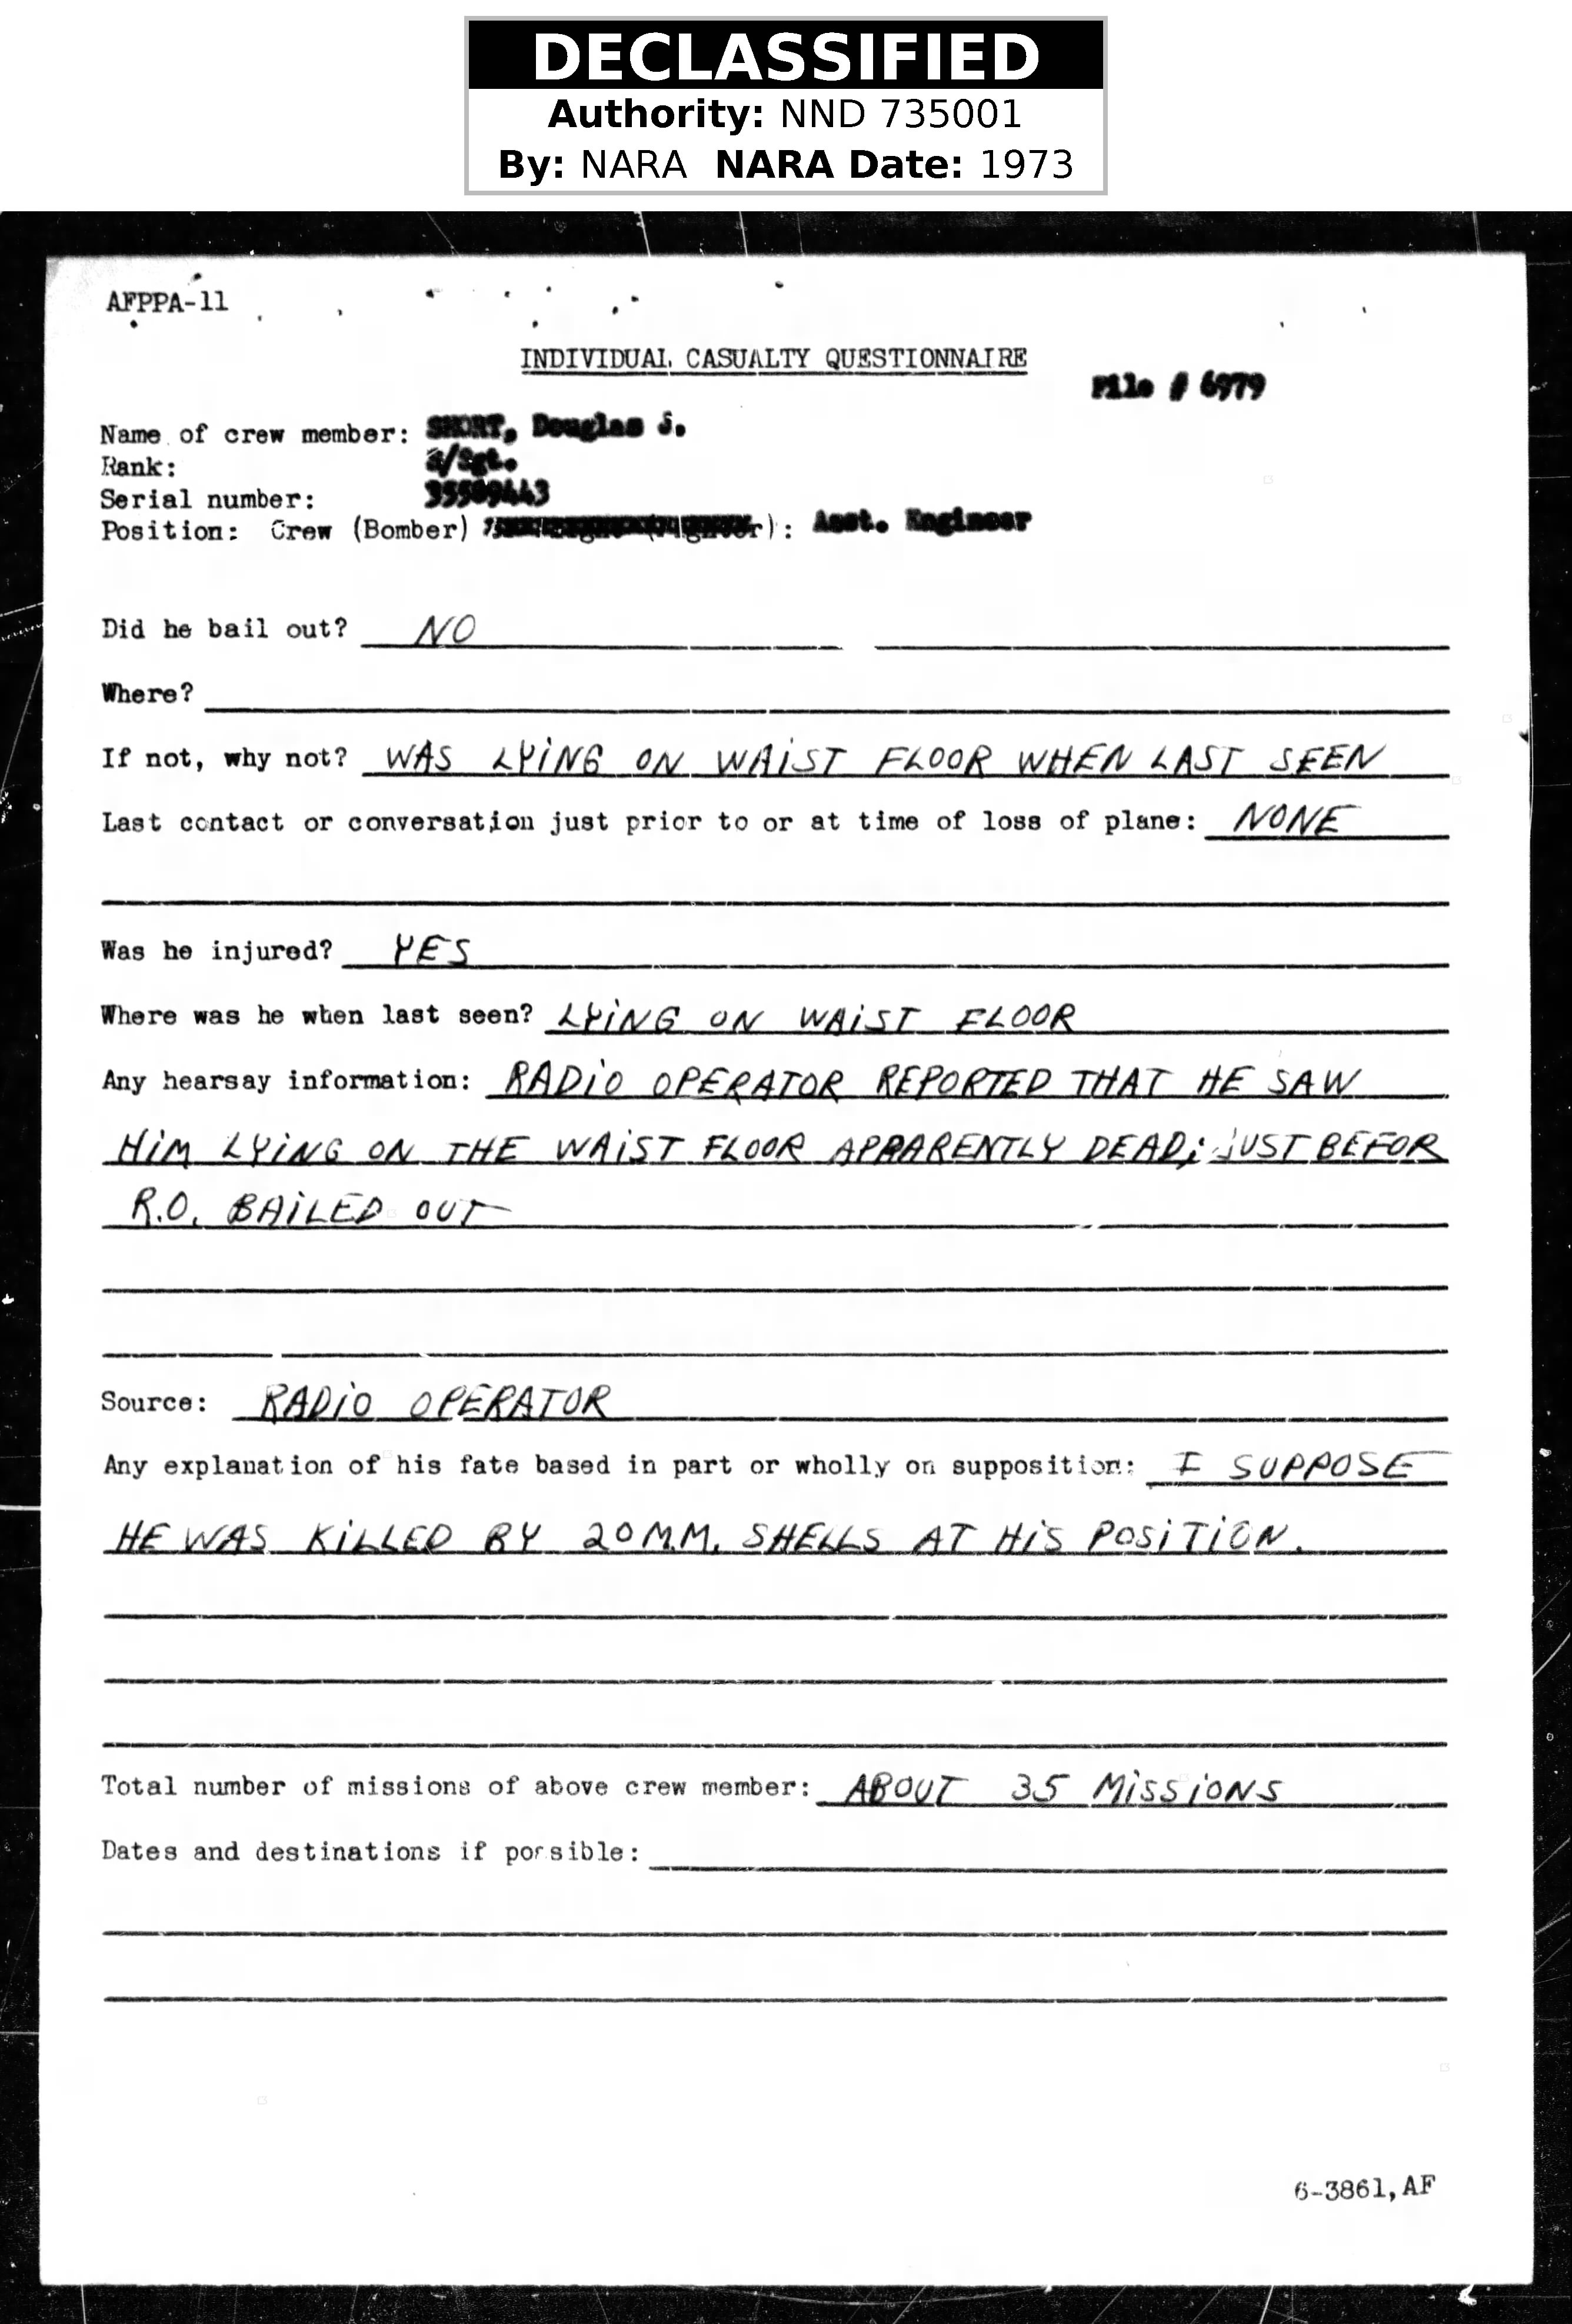 DECLASSIFIED
Authority: NND 735001
By: NARA NARA Date: 1973
AFPPA-11
INDIVIDUAL CASUALTY QUESTIONNAIRE
File # 6979
Name of crew member: SHORT, Douglas J.
Rank: S/Sgt.
Serial number: 35589443
Position: Crew (Bomber) ): Asst. Engineer
Did he bail out? NO
Where?
If not, why not? WAS LYING ON WAIST FLOOR WHEN LAST SEEN
Last contact or conversation just prior to or at time of loss of plane: NONE
Was he injured? YES
Where was he when last seen? LYING ON WAIST FLOOR
Any hearsay information: RADIO OPERATOR REPORTED THAT HE SAW
HIM LYING ON THE WAIST FLOOR APPARENTLY DEAD; JUST BEFOR
R.O. BAILED OUT
Source: RADIO OPERATOR
Any explanation of his fate based in part or wholly on supposition: I SUPPOSE
HE WAS KILLED BY 20 M.M. SHELLS AT HIS POSITION.
Total number of missions of above crew member: ABOUT 35 MISSIONS
Dates and destinations if possible:
6-3861,AF